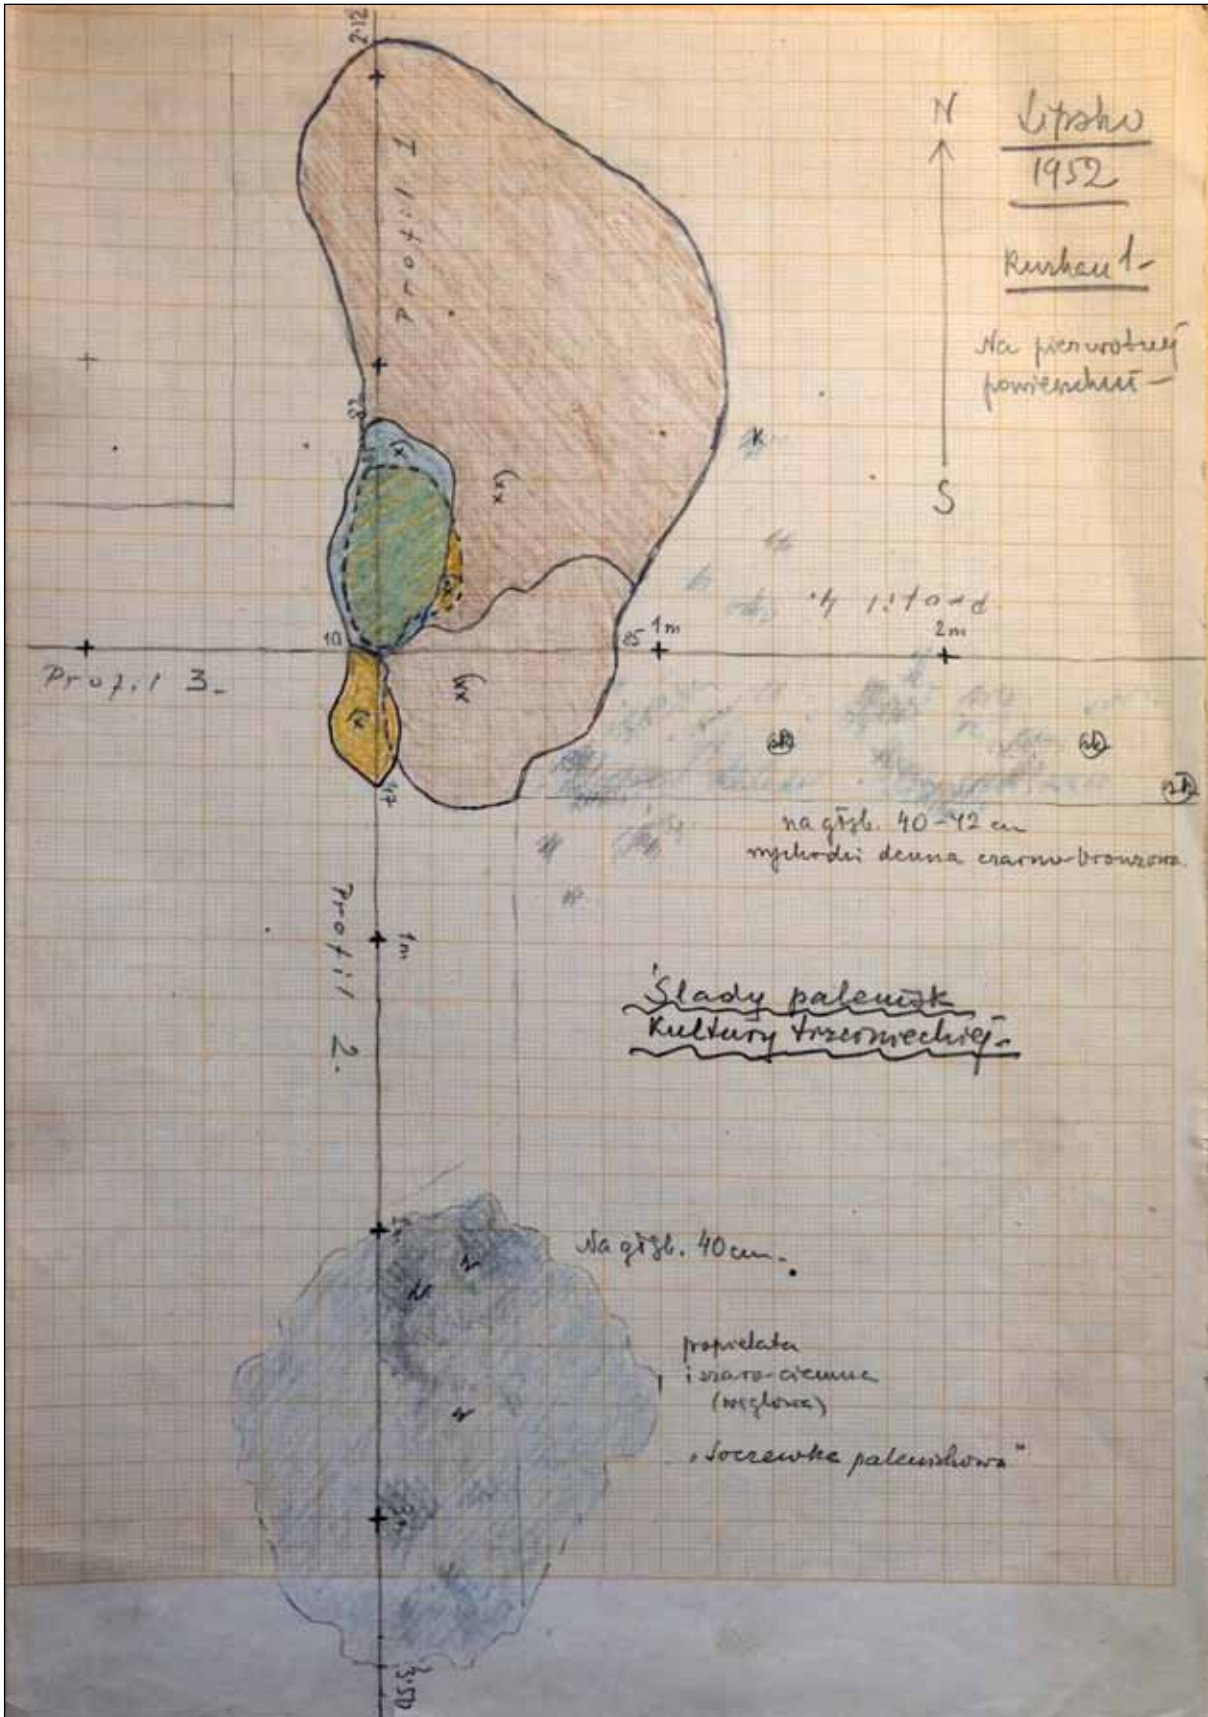 2·12
N
Lipsko
1952
Profil 1
Kurhan 1-
Na pierwotnej
powierzchni -
S
(x
(xx
k
Profil 4.
10
85
1m
2m
Profil 3-
(xx
(x
47
sk
sk
sk
na głęb. 40-42 cm
wychodzi ciemna czarno-bronzowa
Profil 2.
1m
Ślady palenisk
Kultury trzcinieckiej-
Na głęb. 40 cm-
popielata
i szaro-ciemna
(węglowa)
„Soczewka paleniskowa"
3·50